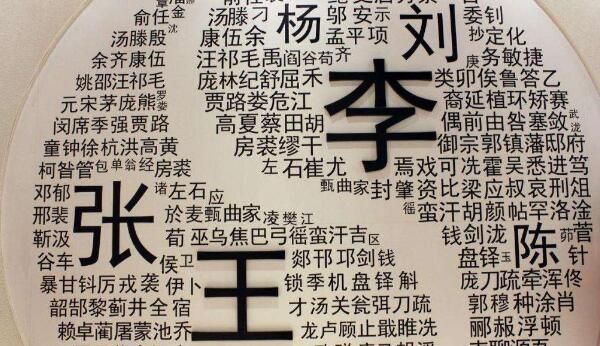 俞任金
沈
汤滕殷
余齐康伍
姚邵汪祁毛
元宋茅庞熊
罗娄
闵席季强贾路
童钟徐杭洪高黄
柯昝管包单翁经房裘
邓郁
邢裴
靳汲
谷车
张
诸左石应
於麦甄曲家凌樊江
荀巫乌焦巴弓徭蛮汗吉区
侯卫
暴甘钭厉戎袭伊卜
韶郜黎蓟井全宿
赖卓蔺屠蒙池乔
汤滕刁
康伍余
汪祁毛禹阎谷苟齐
庞林纪舒屈禾
贾路娄危江
高夏蔡田胡
房裘缪干
左石崔尤
甄曲家封肇资比梁应叔哀刑俎
杨
邬安示
孟平项
李
刘
委钊
抄定化
庚务敏捷
类卯俟鲁答乙
裔延植环矫赛
偶前由昝塞敛
武泷
御宗郭镇藩邸府
焉戏可冼霍吴悉进笃
徭蛮汗胡颜帖罕洛淦
钱剑泷
盘铎玉
陈
茆菅
针
王
郯邗邛剑钱
锁季机盘铎斛
才汤关瓮弭刀疏
龙卢顾止戢睢冼
庞刀疏牵浑佟
郭穆种涂肖
郦赧浮顿